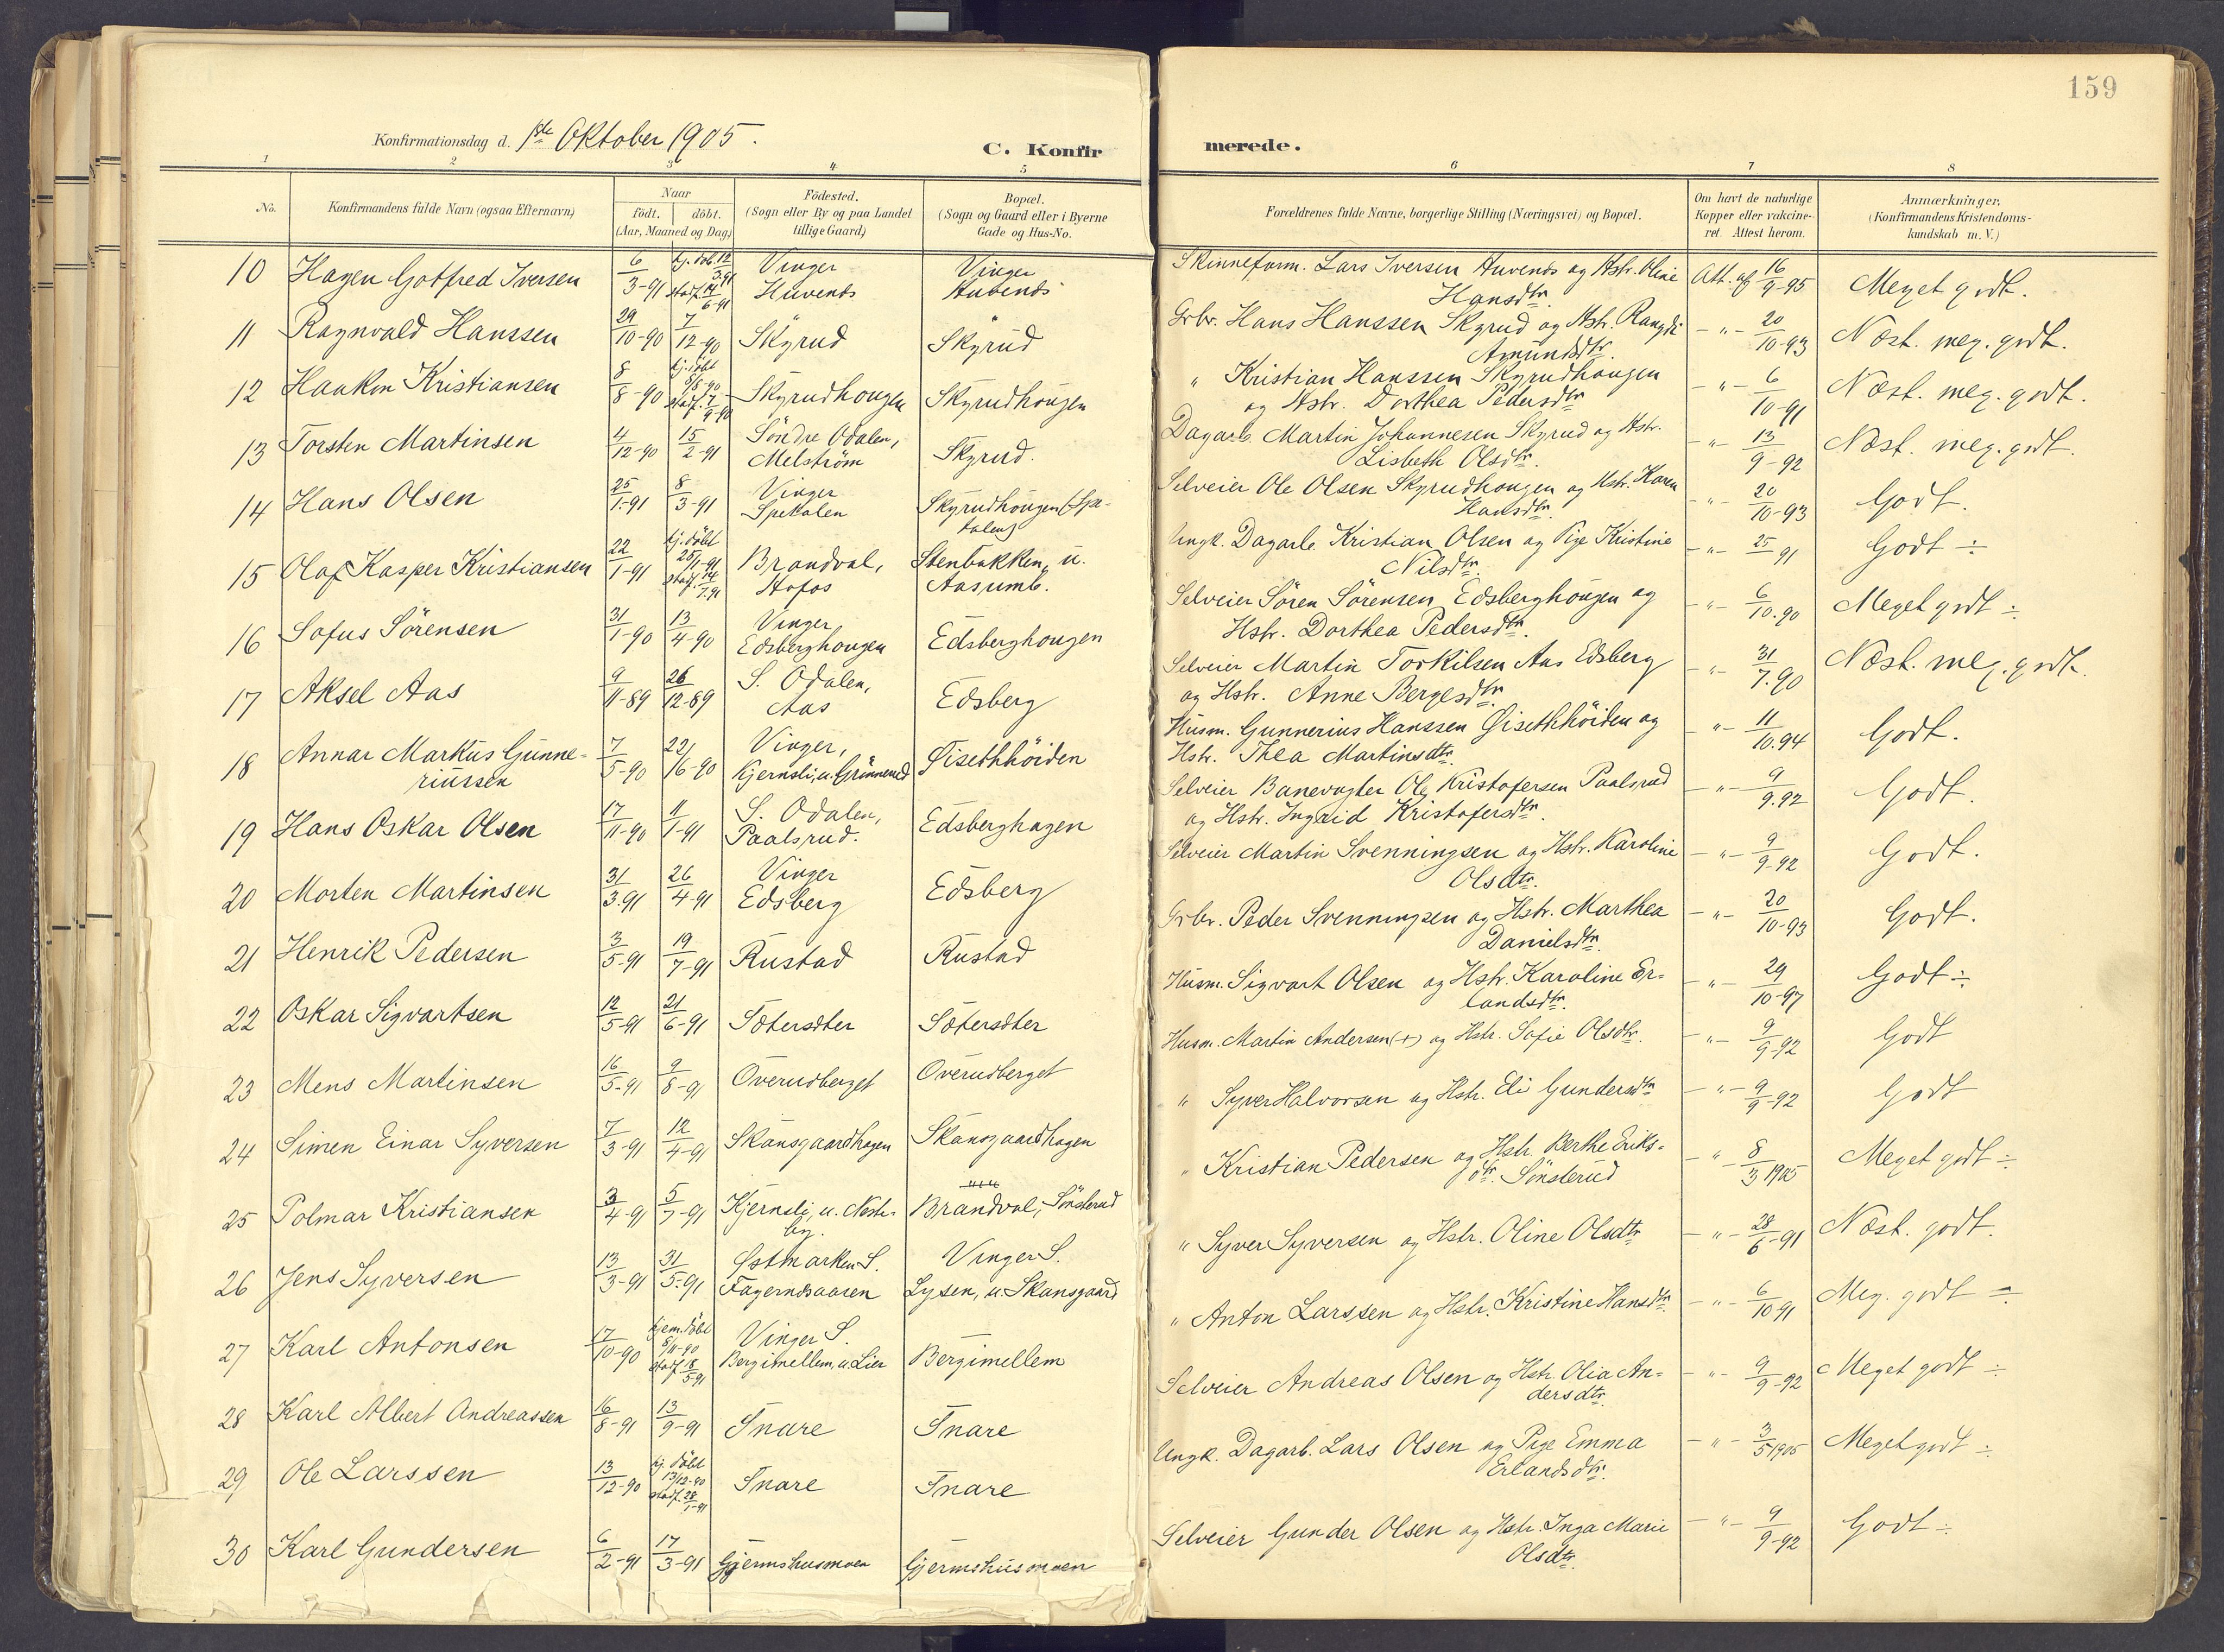 159
Konfirmationsdag d. 1ste Oktober 1905.
C. Konfirmerede.
1 2 3 4 5 6 7 8
No.
Konfirmandens fulde Navn (ogsaa Efternavn)
Naar
født. døbt.
(Aar, Maaned og Dag)
Fødested.
(Sogn eller By og paa Landet
tillige Gaard)
Bopæl.
(Sogn og Gaard eller i Byerne
Gade og Hus-No.
Forældrenes fulde Navne, borgerlige Stilling (Næringsvei) og Bopæl.
Om havt de naturlige
Kopper eller vakcine-
ret. Attest herom.
Anmærkninger,
(Konfirmandens Kristendoms-
kundskab m. V.)
10 Hagen Gotfred Iversen 6/3-91 hj. døb. 12/3.91 stadf. 14/6-91 Vinger Huvends Vinger Aubends Skinneform. Lars Iversen Auvends og Hstr. Oline Hansdtr. Att. af 16/9-95 Meget godt.
11 Ragnvald Hanssen 29/10-90 7/12-90 Skyrud Skyrud Grbr. Hans Hanssen Skyrud og Hstr. Rangdi Amundsdtr. -"- 20/10-93 Næst. meg. godt.
12 Haakon Kristiansen 8/8-90 hj. døbt 9/8-90 stadf. 7/9-90 Skyrudhougen Skyrudhougen " Kristian Hanssen Skyrudhaugen og Hstr. Dorthea Pedersdtr -"- 6/10-91 Næst. meg. godt.
13 Torsten Martinsen 4/12-90 15/2-91 Söndre Odalen, Melström Skyrud. Dagarb. Martin Johannesen Skyrud og Hstr. Lisbeth Olsdtr. -"- 13/9-92 Næst. meg. godt.
14 Hans Olsen 25/1-91 8/3-91 Vinger Spetalen Skyrudhougen (Spetalen) Selveier Ole Olsen Skyrudhougen og Hstr. Karen Hansdtr. -"- 20/10-93 Godt.
15 Olaf Kasper Kristiansen 22/1-91 hj. döbt 25/1-91 stadf. 14/7.91 Brandval, Hofos Stenbakken, u. Aasumb. Ungk. Dagarb. Kristian Olsen og Pige Kristine Nilsdtr. -"- 25/91 Godt ÷
16 Sofus Sörensen 31/1-90 13/4-90 Vinger Edsberghougen Edsberghougen Selveier Sören Sörensen, Edsberghougen og Hstr. Dorthea Pedersdtr. -"- 6/10.90 Meget godt ÷
17 Aksel Aas 9/11-89 26/12-89 S. Odalen, Aas Edsberg Selveier Martin Torkilsen Aas Edsberg og Hstr. Anne Bergesdtr. -"- 31/7.90 Næst. meg. godt.
18 Annar Markus Gunneriussen 7/5-90 22/6-90 Vinger, Kjernsli, u. Grünnerud Øisethhöiden Husm. Gunnerius Hanssen Øisethhöiden og Hstr. Thea Martinsdtr. -"- 11/10.94 Godt.
19 Hans Oskar Olsen 17/11-90 11/1-91 S. Odalen, Paalsrud. Edsberghagen Selveier Banevogter Ole Kristofersen Paalsrud og Hstr. Ingrid Kristofersdtr. -"- 9/9.92 Godt.
20 Morten Martinsen 31/3.91 26/4-91 Vinger Edsberg Edsberg Selveier Martin Svenningsen og Hstr. Karoline Olsdtr. -"- 9/9-92 Godt.
21 Henrik Pedersen 3/5-91 19/7-91 Rustad Rustad Grbr. Peder Svenningsen og Hstr. Marthea Danielsdtr. -"- 20/10-93 Godt.
22 Oskar Sigvartsen 12/5-91 21/6-91 Sætersæter Sætersæter Husm. Sigvart Olsen og Hstr. Karoline Erlandsdtr. -"- 29/10-97 Godt ÷
23 Mens Martinsen 16/5-91 9/8-91 Överudberget Överudberget Husm. Martin Andersen (+) og Hstr. Sofie Olsdtr. -"- 9/9-92 Godt
24 Simen Einar Syversen 7/3-91 12/4-91 Skansgaardhagen Skansgaardhagen " Syver Halvorsen og Hstr. Eli Gundersdtr -"- 9/9-92 Godt
25 Polmar Kristiansen 3/4-91 5/7-91 Kjernsli, u. Nesteby. Brandval, Sönsterud " Kristian Pedersen og Hstr. Berthe Eriksdtr. Sönsterud -"- 8/3 1905 Meget godt ÷
26 Jens Syversen 13/3-91 31/5-91 Østmarken S. Fagernæsaaren Vinger S. Lysen, u. Skansgaard " Syver Syversen og Hstr. Oline Olsdtr -"- 28/6-91 Næst. godt.
27 Karl Antonsen 17/10-90 hjem.döbt 8/11-90 stadf. 18/5-91 Vinger S. Bergimellem, u. Lier Bergimellem " Anton Larssen og Hstr. Kristine Hansdtr -"- 6/10.91 Meg. godt ÷
28 Karl Albert Andreassen 16/8-91 13/9-91 Snare Snare Selveier Andreas Olsen og Hstr. Olia Andersdtr. -"- 9/9-92 Meget godt ÷
29 Ole Larssen 13/12-90 hj. döbt 13/12-90 stadf. 28/1-91 Snare Snare Ungk. Dagarb. Lars Olsen og Pige Emma Erlandsdtr. -"- 3/5 1905 Meget godt ÷
30 Karl Gundersen 6/2-91 17/3-91 Gjermshusmoen Gjermshusmoen Selveier Gunder Olsen og Hstr. Inga Marie Olsdtr. -"- 9/9-92 Godt ÷